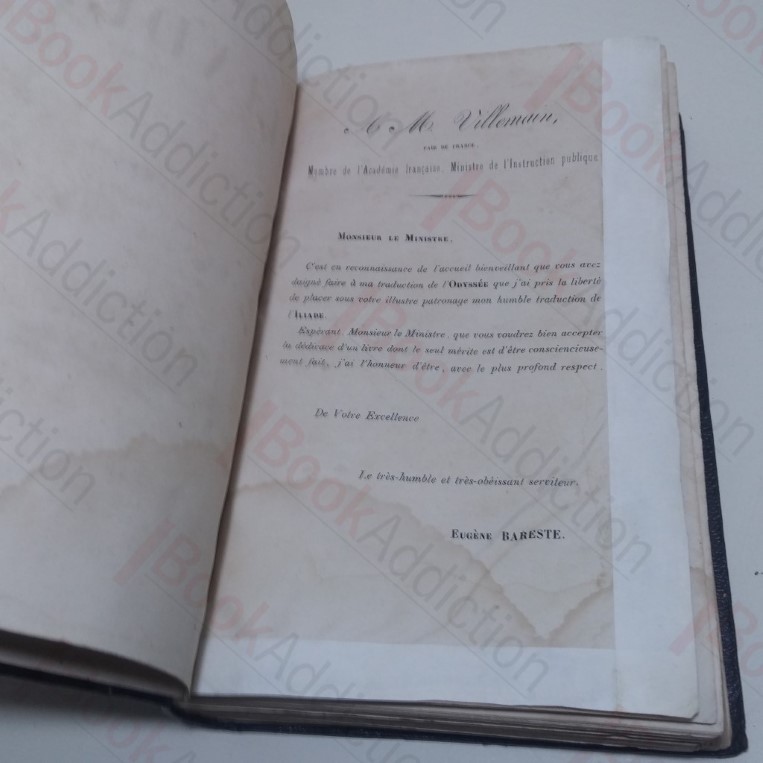 A M. Villemain,
PAIR DE FRANCE,
Membre de l'Académie française, Ministre de l'Instruction publique
MONSIEUR LE MINISTRE,
C'est en reconnaissance de l'accueil bienveillant que vous avez
daigné faire à ma traduction de l'ODYSSÉE que j'ai pris la liberté
de placer sous votre illustre patronage mon humble traduction de
l'ILIADE
Espérant, Monsieur le Ministre, que vous voudrez bien accepter
la dédicace d'un livre dont le seul mérite est d'être consciencieuse-
ment fait, j'ai l'honneur d'être, avec le plus profond respect.
De Votre Excellence
Le très-humble et très-obéissant serviteur.
EUGÈNE BARESTE.
BookAddiction